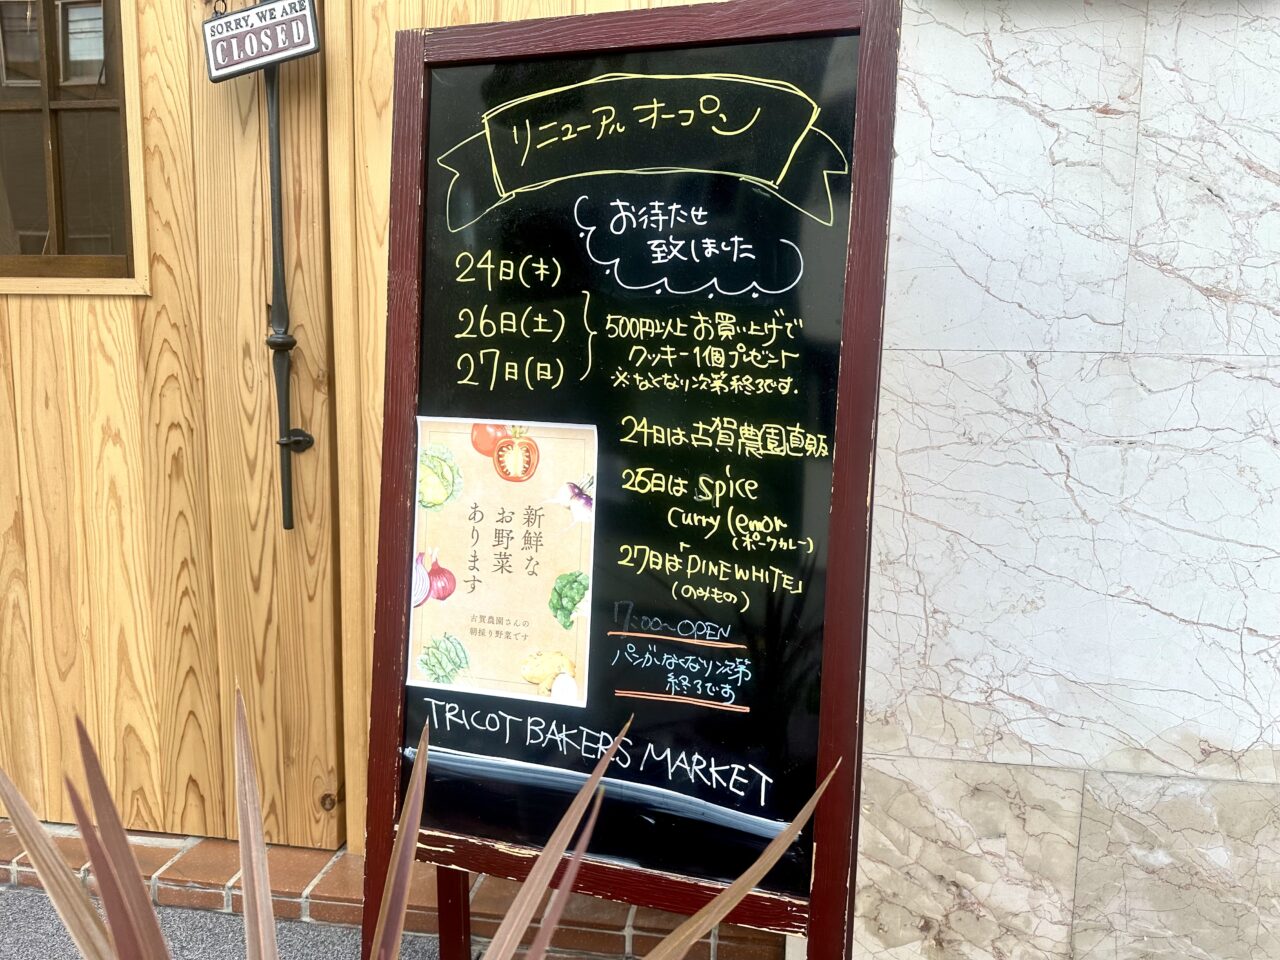 SORRY, WE ARE
CLOSED
リニューアルオープン
お待たせ
致しました
24日(木)
26日(土)
27日(日)
500円以上お買い上げで
クッキー1個プレゼント
※なくなり次第終了です.
24日は古賀農園直販
26日は Spice
Curry lemon
(ポークカレー)
27日は「PINE WHITE」
(のみもの)
7:00〜OPEN
パンがなくなり次第
終了です
新鮮な
お野菜
あります
古賀農園さんの
朝採り野菜です
TRICOT BAKERS MARKET